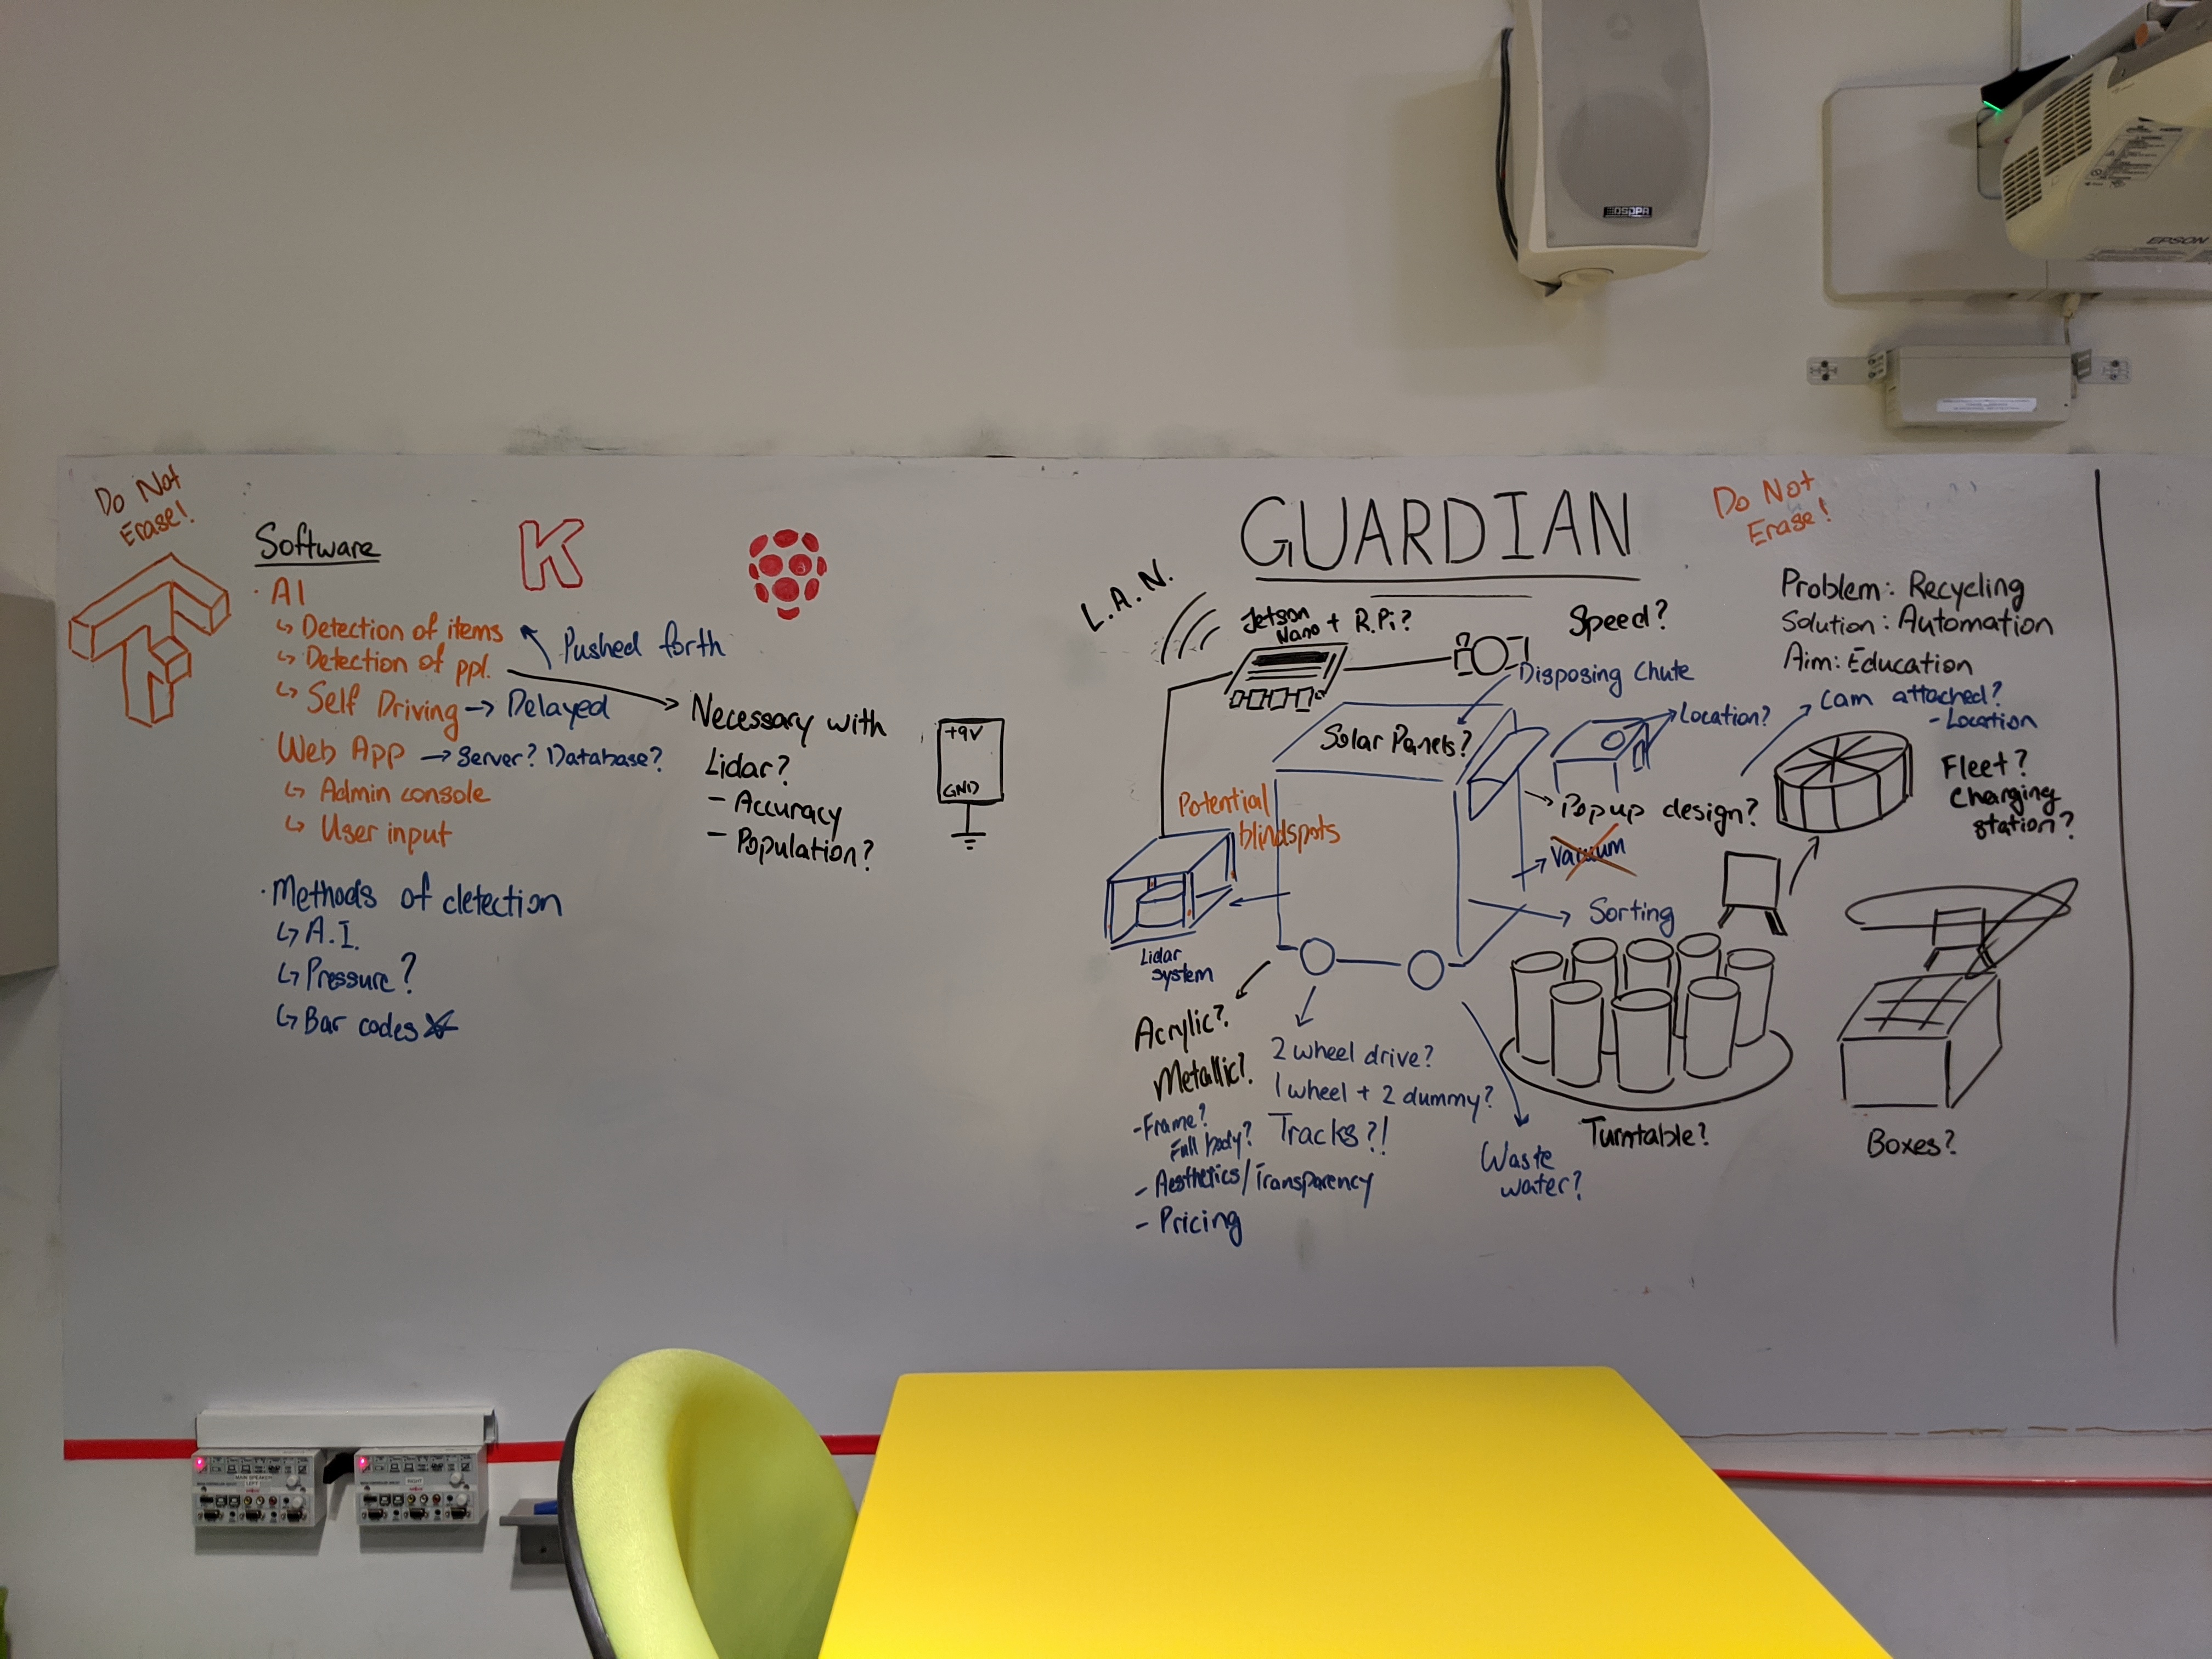 Do Not
Erase!
Software
K
· AI
↳ Detection of items
↳ Detection of ppl.
Pushed forth
↳ Self Driving → Delayed
Web App → Server? Database?
↳ Admin console
↳ User input
Necessary with
Lidar?
- Accuracy
- Population?
+9V
GND
· Methods of detection
↳ A.I.
↳ Pressure?
↳ Bar codes
GUARDIAN
Do Not
Erase!
L.A.N.
Jetson
Nano + R.Pi?
Speed?
Problem: Recycling
Solution: Automation
Aim: Education
Disposing Chute
Solar Panels?
Location?
Cam attached?
- Location
Fleet?
Charging
station?
Potential
blindspots
Popup design?
Vacuum
Sorting
Lidar
system
Acrylic?
Metallic?
- Frame?
Full body?
- Aesthetics/Transparency
- Pricing
2 wheel drive?
1 wheel + 2 dummy?
Tracks?!
Waste
water?
Turntable?
Boxes?
DSPPA
EPSON
MAIN SPEAKER
LEFT
RIGHT